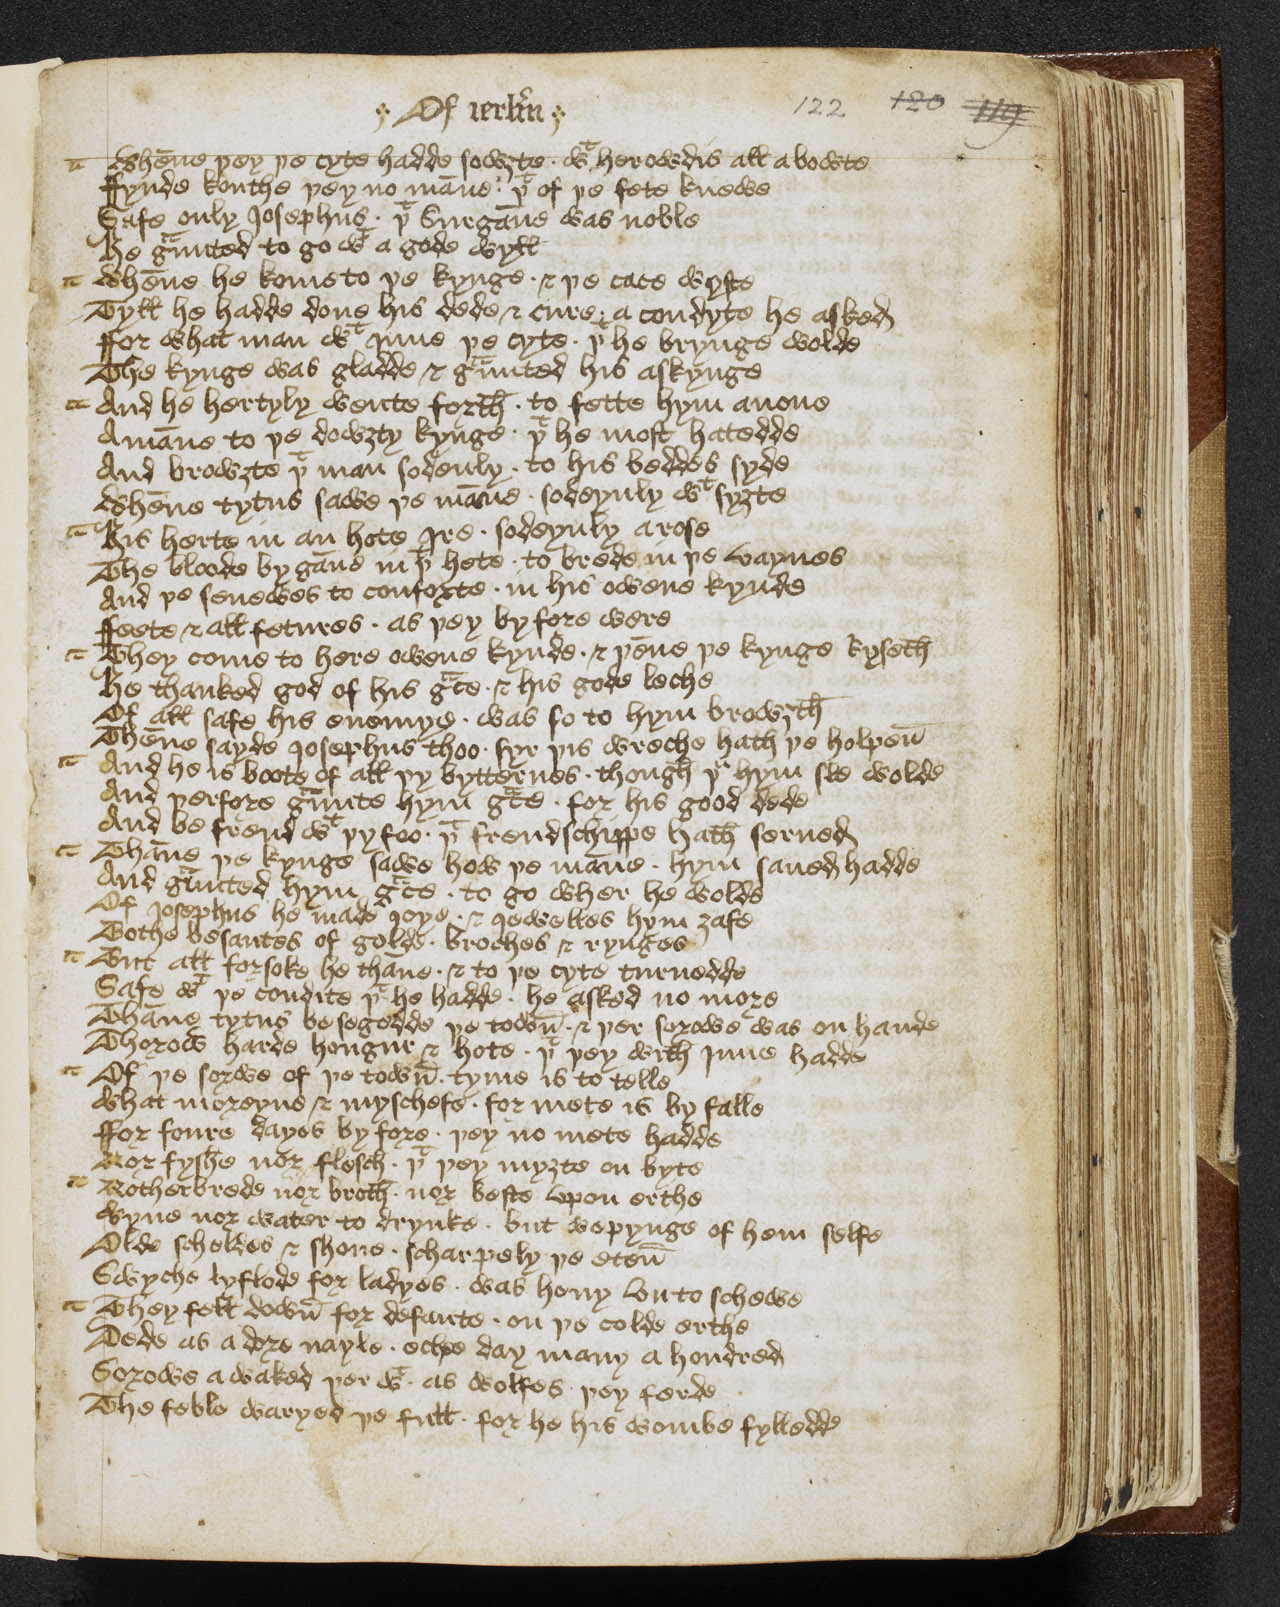 Of ierl'm
122 120 119
Whēne þey þe cyte hadde sowȝte · wt herowdis all a bowte
ffynde kouthe þey no māne · þt of þe fete knewe
Safe only Josephus · þt Surgāne was noble
He graunted to go wt a gode wyll
Whēne he kome to þe kynge · & þe cace wyste
Tyll he hadde done his dede & cure · a condyte he asked
ffor what man wt Inne þe cyte · þt he brynge wolde
The kynge was gladde & graunted his askynge
And he hertyly wente forth · to fette hym anone
A māne to þe dowȝty kynge · þt he most hatedde
And browȝte þt man sodenly · to his beddes syde
Whēne tytus sawe þe māne · sodeynly wt syȝte
His herte in an hote Ire · sodeynly arose
The bloode by gāne in þt hete · to brede in þe vaynes
And þe senewes to conforte · in his owene kynde
ffeete & all fetures · as þey by fore were
They come to here owene kynde · & þēne þe kynge Ryseth
He thanked god of his grace · & his gode leche
Of all safe his enemye · was so to hym browȝth
Thēne sayde Josephus thoo · syr þis wreche hath þe holpen̄
And he is boote of all þy bytternes · though þu hym sle wolde
And þerfore graunte hym grace · for his good dede
And be frend wt þy foo · þt frendschippe hath serued
Thāne þe kynge sawe how þe māne · hym saued hadde
And graunted hym grace · to go wher he wolde
Of Josephus he made Joye · & Jewelles hym ȝafe
Bothe besantes of golde · broches & rynges
But all forsoke he thāne · & to þe cyte turnedde
Safe wt þe condite þt he hadde · he asked no more
Thāne tytus besegedde þe town̄ · & þer sorowe was on hande
Thorow harde hongur & hote · þt þey with Inne hadde
Of þe sorwe of þe town̄ · tyme is to telle
What moreyne & myschefe · for mete is by falle
ffor foure dayes by fore · þey no mete hadde
Nor fyshe nor flesch · þt þey myȝte on byte
Notherbrede nor broth · nor beste vpon erthe
Wyne nor water to drynke · but wepynge of hem selfe
Olde scheldes & shone · scharpely þe eten̄
Swyche lyflode for ladyes · was hony vnto schewe
They fell down̄ for defaute · on þe colde erthe
Dede as a dore nayle · eche day many a hondred
Sorowe awaked þer wt · as wolfes þey ferde
The feble waryed þe full · for he his wombe fylledde